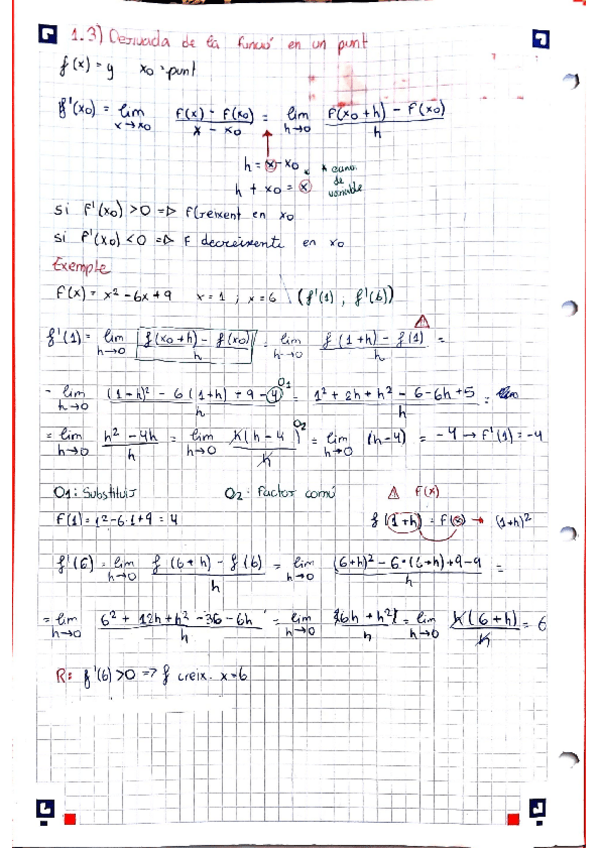 1.3) Derivada de la funció en un punt
f(x) = y   x₀ = punt
f'(x₀) = lim x→x₀ (f(x) - f(x₀))/(x - x₀) = lim h→0 (f(x₀ + h) - f(x₀))/h
h = x - x₀
h + x₀ = x
* canvi de variable
si f'(x₀) > 0 => F creixent en x₀
si f'(x₀) < 0 => F decreixente en x₀
Exemple
F(x) = x² - 6x + 9   x = 1 ; x = 6 \ (f'(1), f'(6))
f'(1) = lim h→0 (f(x₀+h) - f(x₀))/h = lim h→0 (f(1+h) - f(1))/h =
= lim h→0 ((1-h)² - 6(1+h) + 9 - 4)/h O1 = (1² + 2h + h² - 6 - 6h + 5)/h =
= lim h→0 (h² - 4h)/h = lim h→0 (h(h - 4))/h O2 = lim h→0 (h-4) = -4 → F'(1) = -4
O1: Substituir   O2: Factor comú   ⚠ F(x)
F(1) = 1² - 6·1 + 9 = 4   f(1+h) = F(x) → (1+h)²
f'(6) = lim h→0 (f(6+h) - f(6))/h = lim h→0 ((6+h)² - 6·(6+h) + 9 - 9)/h =
= lim h→0 (6² + 12h + h² - 36 - 6h)/h = lim h→0 (6h + h²)/h = lim h→0 (h(6+h))/h = 6
R: f'(6) > 0 => f creix. x = 6